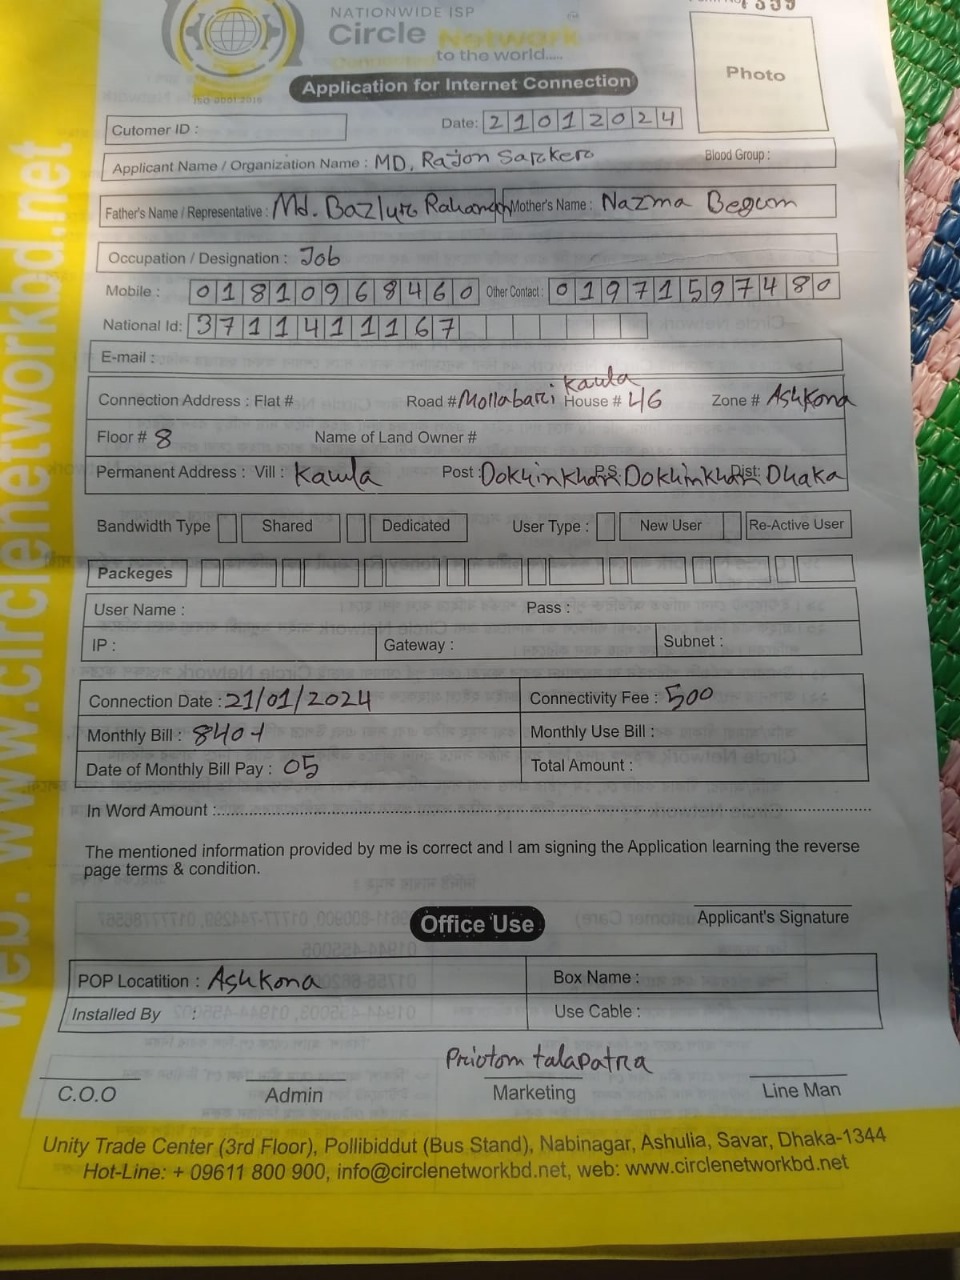 NATIONWIDE ISP
Circle Network
to the world.....
ISO 9001:2015
Application for Internet Connection
Photo
Cutomer ID :
Date: 21012024
Applicant Name / Organization Name : MD. Rajon Sarker
Blood Group :
Father's Name / Representative : Md. Bazlur Rahman Mother's Name : Nazma Begum
Occupation / Designation : Job
Mobile : 01810968460 Other Contact : 01971597480
National Id: 3711411167
E-mail :
Kaula
Connection Address : Flat # Road # Mollabari House # 46 Zone # Ashkona
Floor # 8 Name of Land Owner #
Permanent Address : Vill : Kawla Post : Dokhinkhan P.S: Dokhinkhan Dist: Dhaka
Bandwidth Type Shared Dedicated User Type : New User Re-Active User
Packeges
User Name : Pass :
IP : Gateway : Subnet :
Connection Date : 21/01/2024 Connectivity Fee : 500
Monthly Bill : 840/ Monthly Use Bill :
Date of Monthly Bill Pay : 05 Total Amount :
In Word Amount :
The mentioned information provided by me is correct and I am signing the Application learning the reverse
page terms & condition.
Applicant's Signature
Office Use
POP Locatition : Ashkona Box Name :
Installed By : Use Cable :
Priotom talapatra
C.O.O Admin Marketing Line Man
Unity Trade Center (3rd Floor), Pollibiddut (Bus Stand), Nabinagar, Ashulia, Savar, Dhaka-1344
Hot-Line: + 09611 800 900, info@circlenetworkbd.net, web: www.circlenetworkbd.net
web: www.circlenetworkbd.net